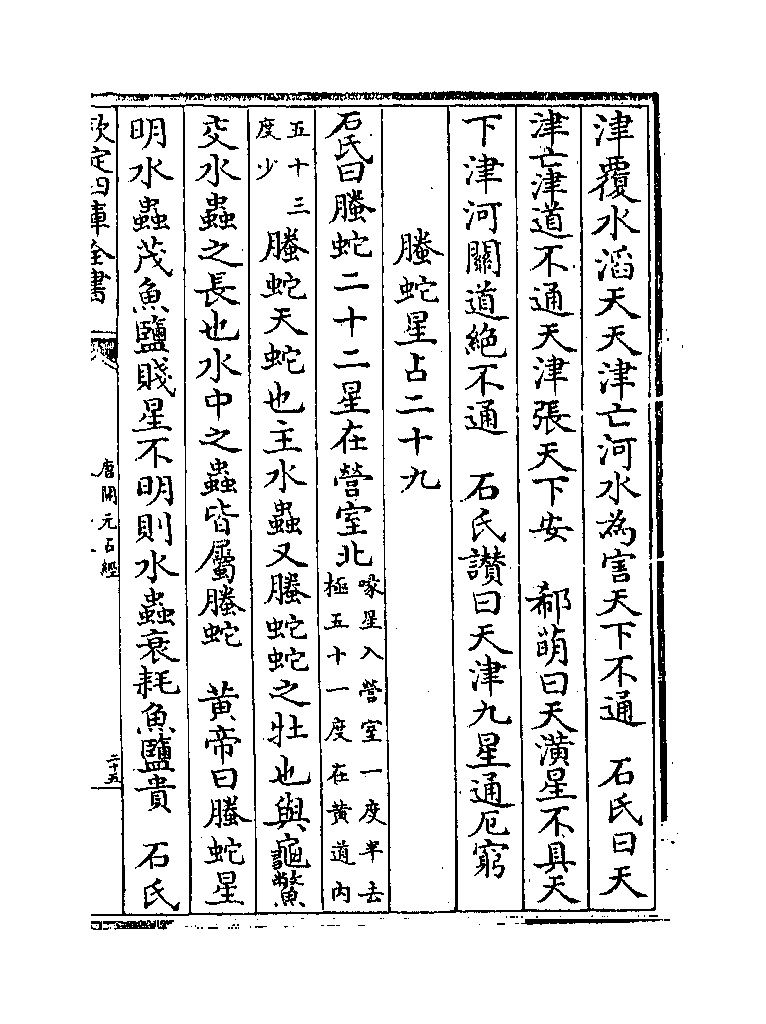 津覆水滔天天津亡河水為害天下不通　石氏曰天
津亡津道不通天津張天下安　郗萌曰天潢星不具天
下津河關道絶不通　石氏讃曰天津九星通厄窮
螣蛇星占二十九
石氏曰螣蛇二十二星在營室北喙星入營室一度半去極五十一度在黄道内
五十三度少螣蛇天蛇也主水蟲又螣蛇蛇之牡也與龜鱉
交水蟲之長也水中之蟲皆屬螣蛇　黄帝曰螣蛇星
明水蟲茂魚鹽賤星不明則水蟲衰耗魚鹽貴　石氏
欽定四庫全書
唐開元占經
二十五